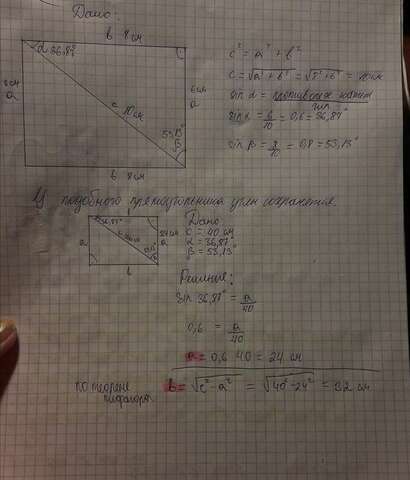 Дано:
b 8 см
α 36,87°
6 см
a
6 см
a
c 10 см
53,13°
β
b 8 см
c² = a² + b²
c = √a² + b² = √8² + 6² = 10 см
sin α = противолеж катет / гип
sin α = 6/10 = 0,6 = 36,87°
sin β = 8/10 = 0,8 = 53,13°
У подобного прямоугольника углы сохранены
b
36,87°
a
24 см
a
b
Дано
c = 40 см
α = 36,87°
β = 53,13°
Решение:
sin 36,87° = a/40
0,6 = a/40
a = 0,6 40 = 24 см
по теореме
пифагора
b = √c² - a² = √40² - 24² = 32 см